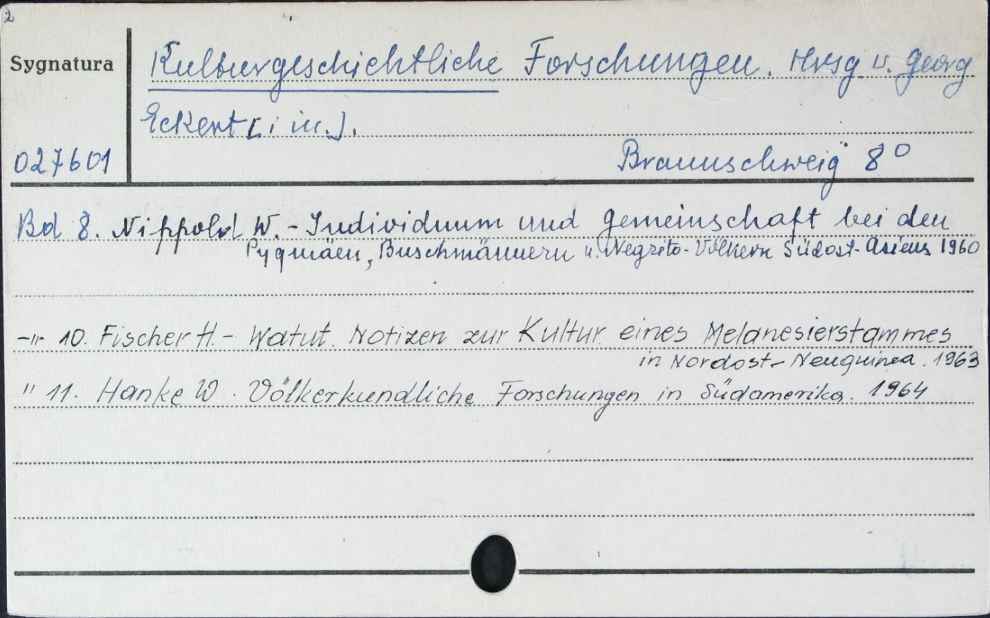 2
Sygnatura
Kulturgeschichtliche Forschungen. Hrsg v. Georg
Eckert [i in.].
027601
Braunschweig 8°
Bd 8. Nippold W. - Individuum und Gemeinschaft bei den
Pygmäen, Buschmännern u. Negrito-Völkern Südost-Asiens 1960
-"- 10. Fischer H. - Watut. Notizen zur Kultur eines Melanesierstammes
in Nordost-Neuguinea. 1963
" 11. Hanke W. Völkerkundliche Forschungen in Südamerika. 1964